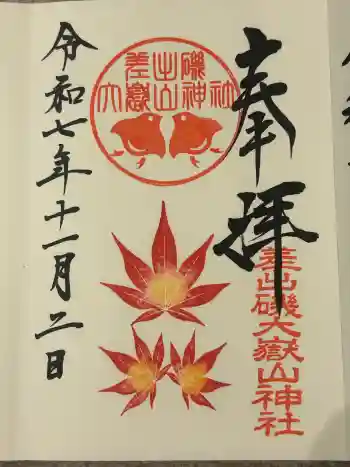 奉拝
差出磯大嶽山神社
差出磯
大嶽山神社
令和七年十一月二日